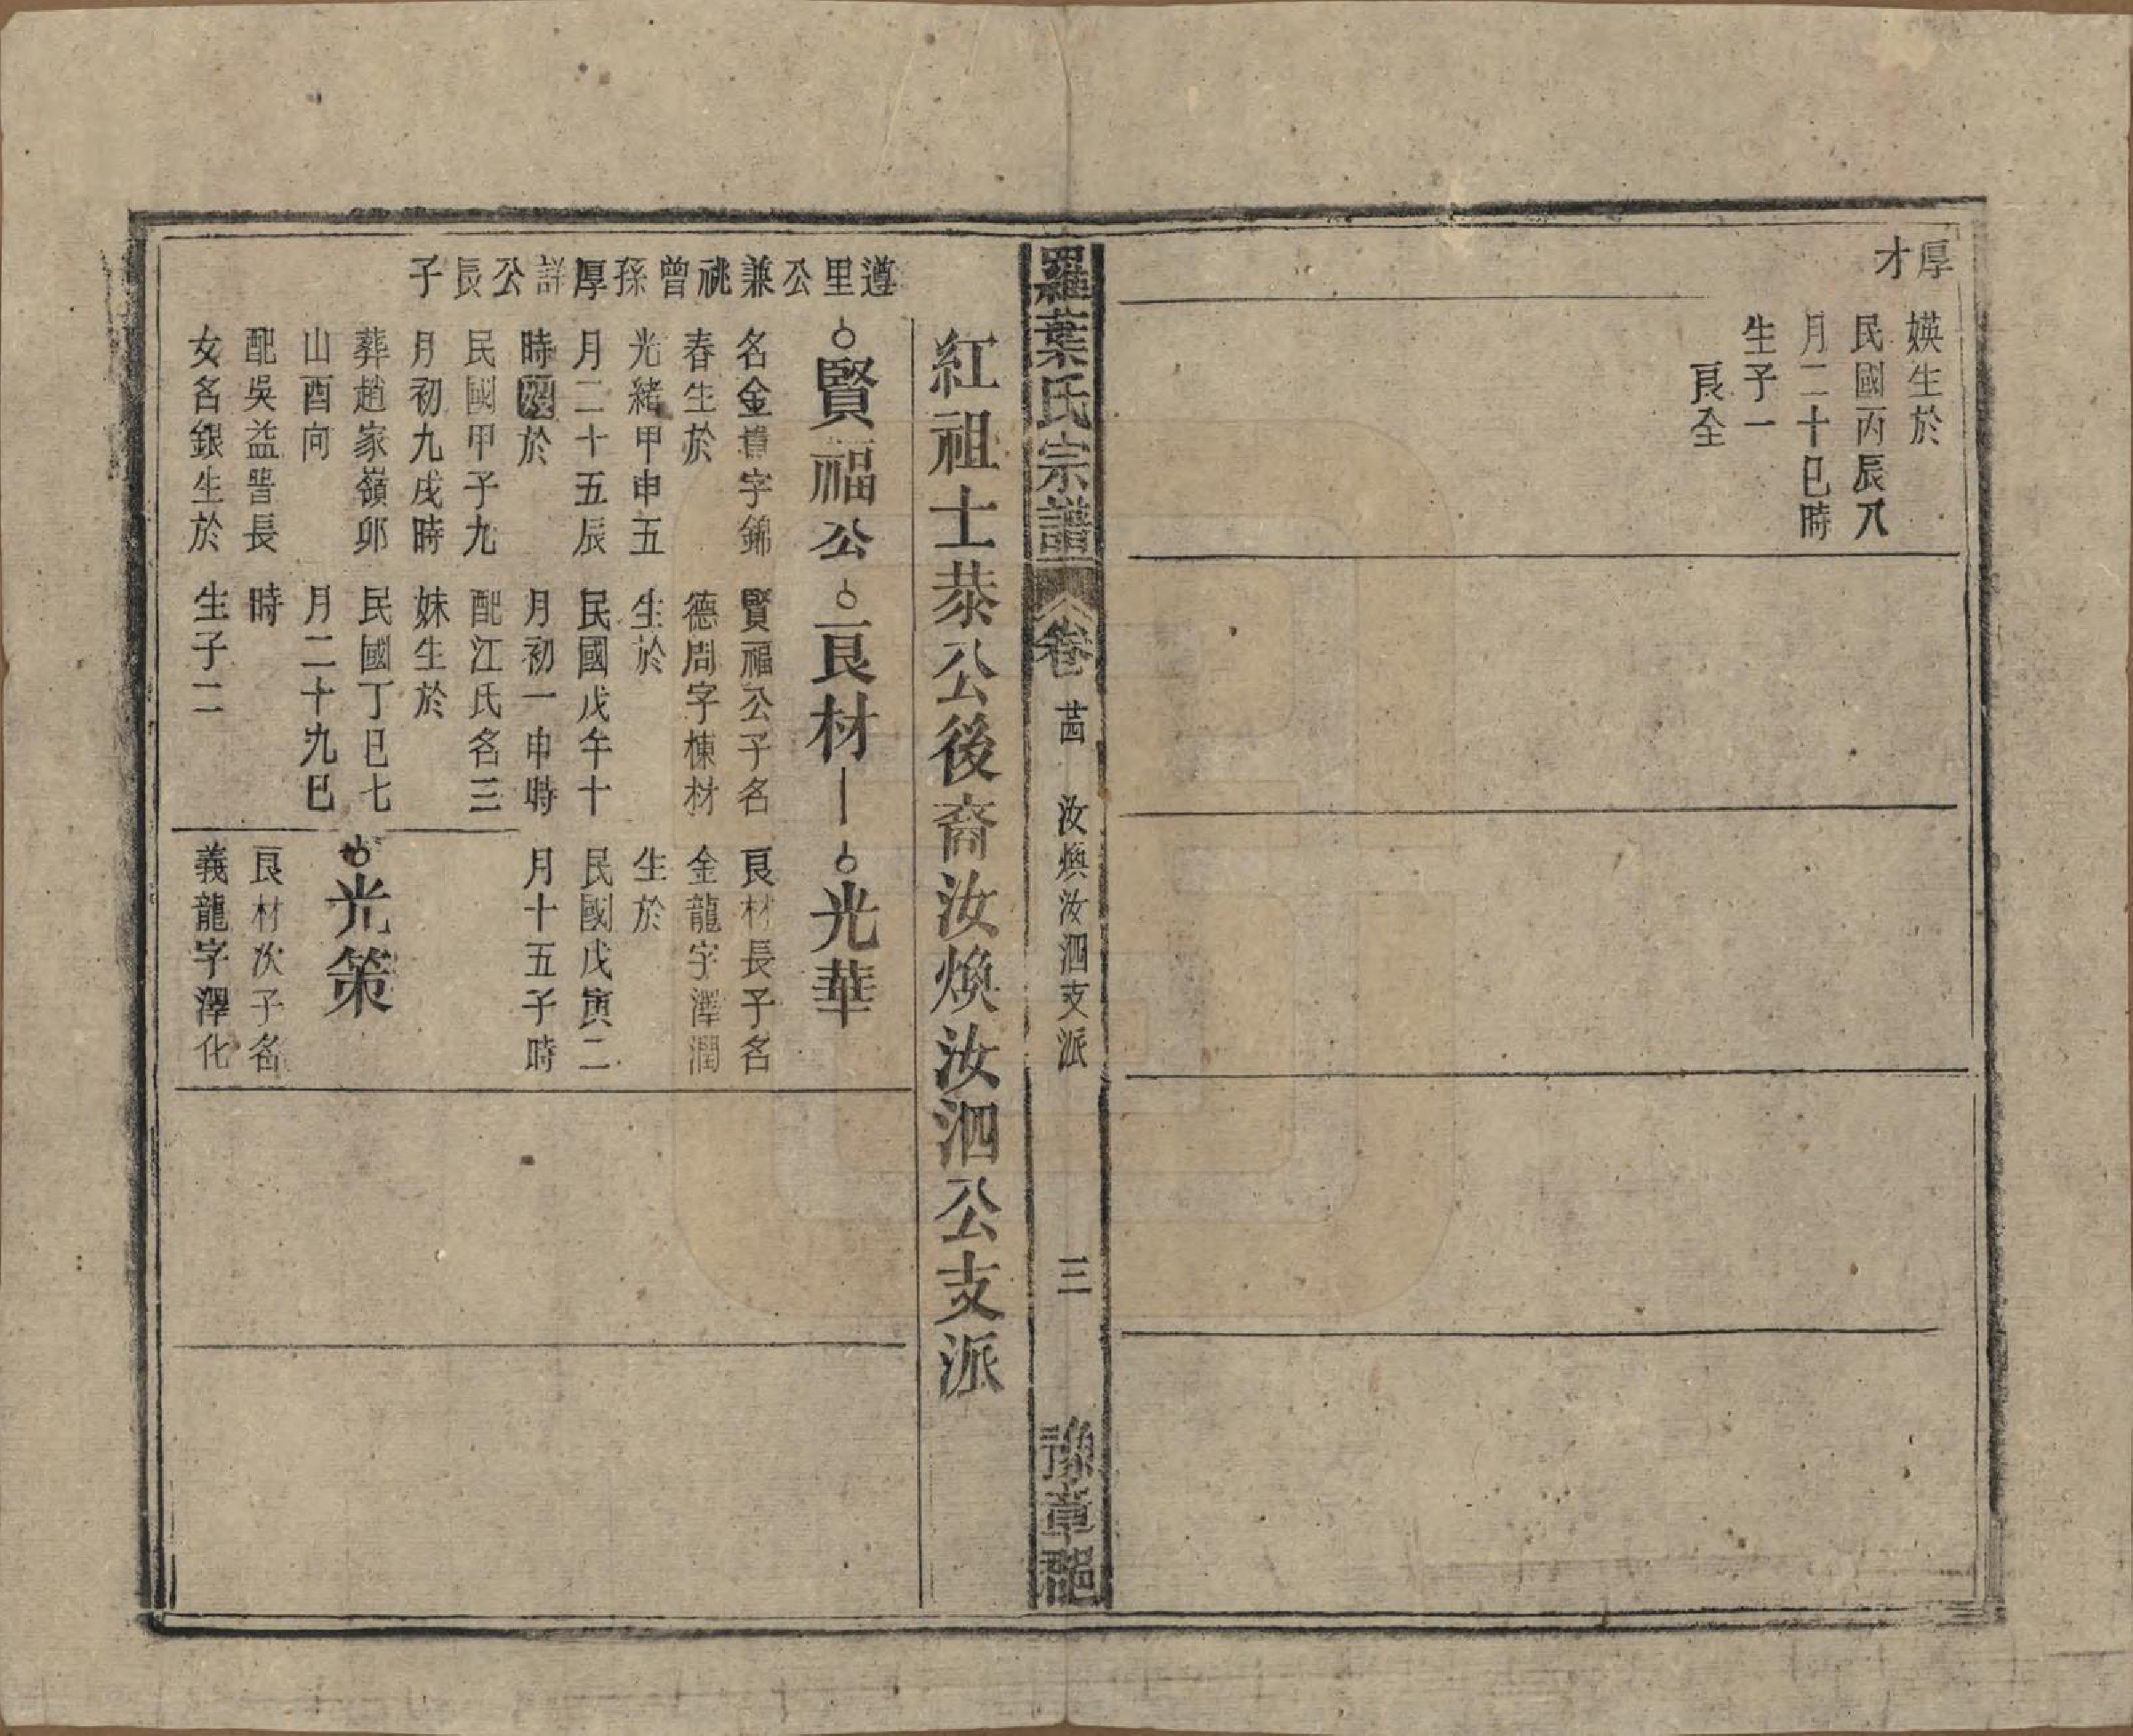 厚才
媖生於
民國丙辰八
月二十巳時
生子一
良全
羅葉氏宗譜 卷 茜 汝煥汝泗支派 三 豫章郡
紅祖士恭公後裔汝煥汝泗公支派
遵里公兼祧曾孫厚詳公長子
賢福公
名金貴字錦
春生於
光緒甲申五
月二十五辰
時歿於
民國甲子九
月初九戌時
葬趙家嶺卯
山酉向
配吳益謍長
女名銀生於
良材
賢福公子名
德周字棟材
生於
民國戊午十
月初一申時
配江氏名三
妹生於
民國丁巳七
月二十九巳
時
生子二
光華
良材長子名
金龍字澤潤
生於
民國戊寅二
月十五子時
光策
良材次子名
義龍字澤化